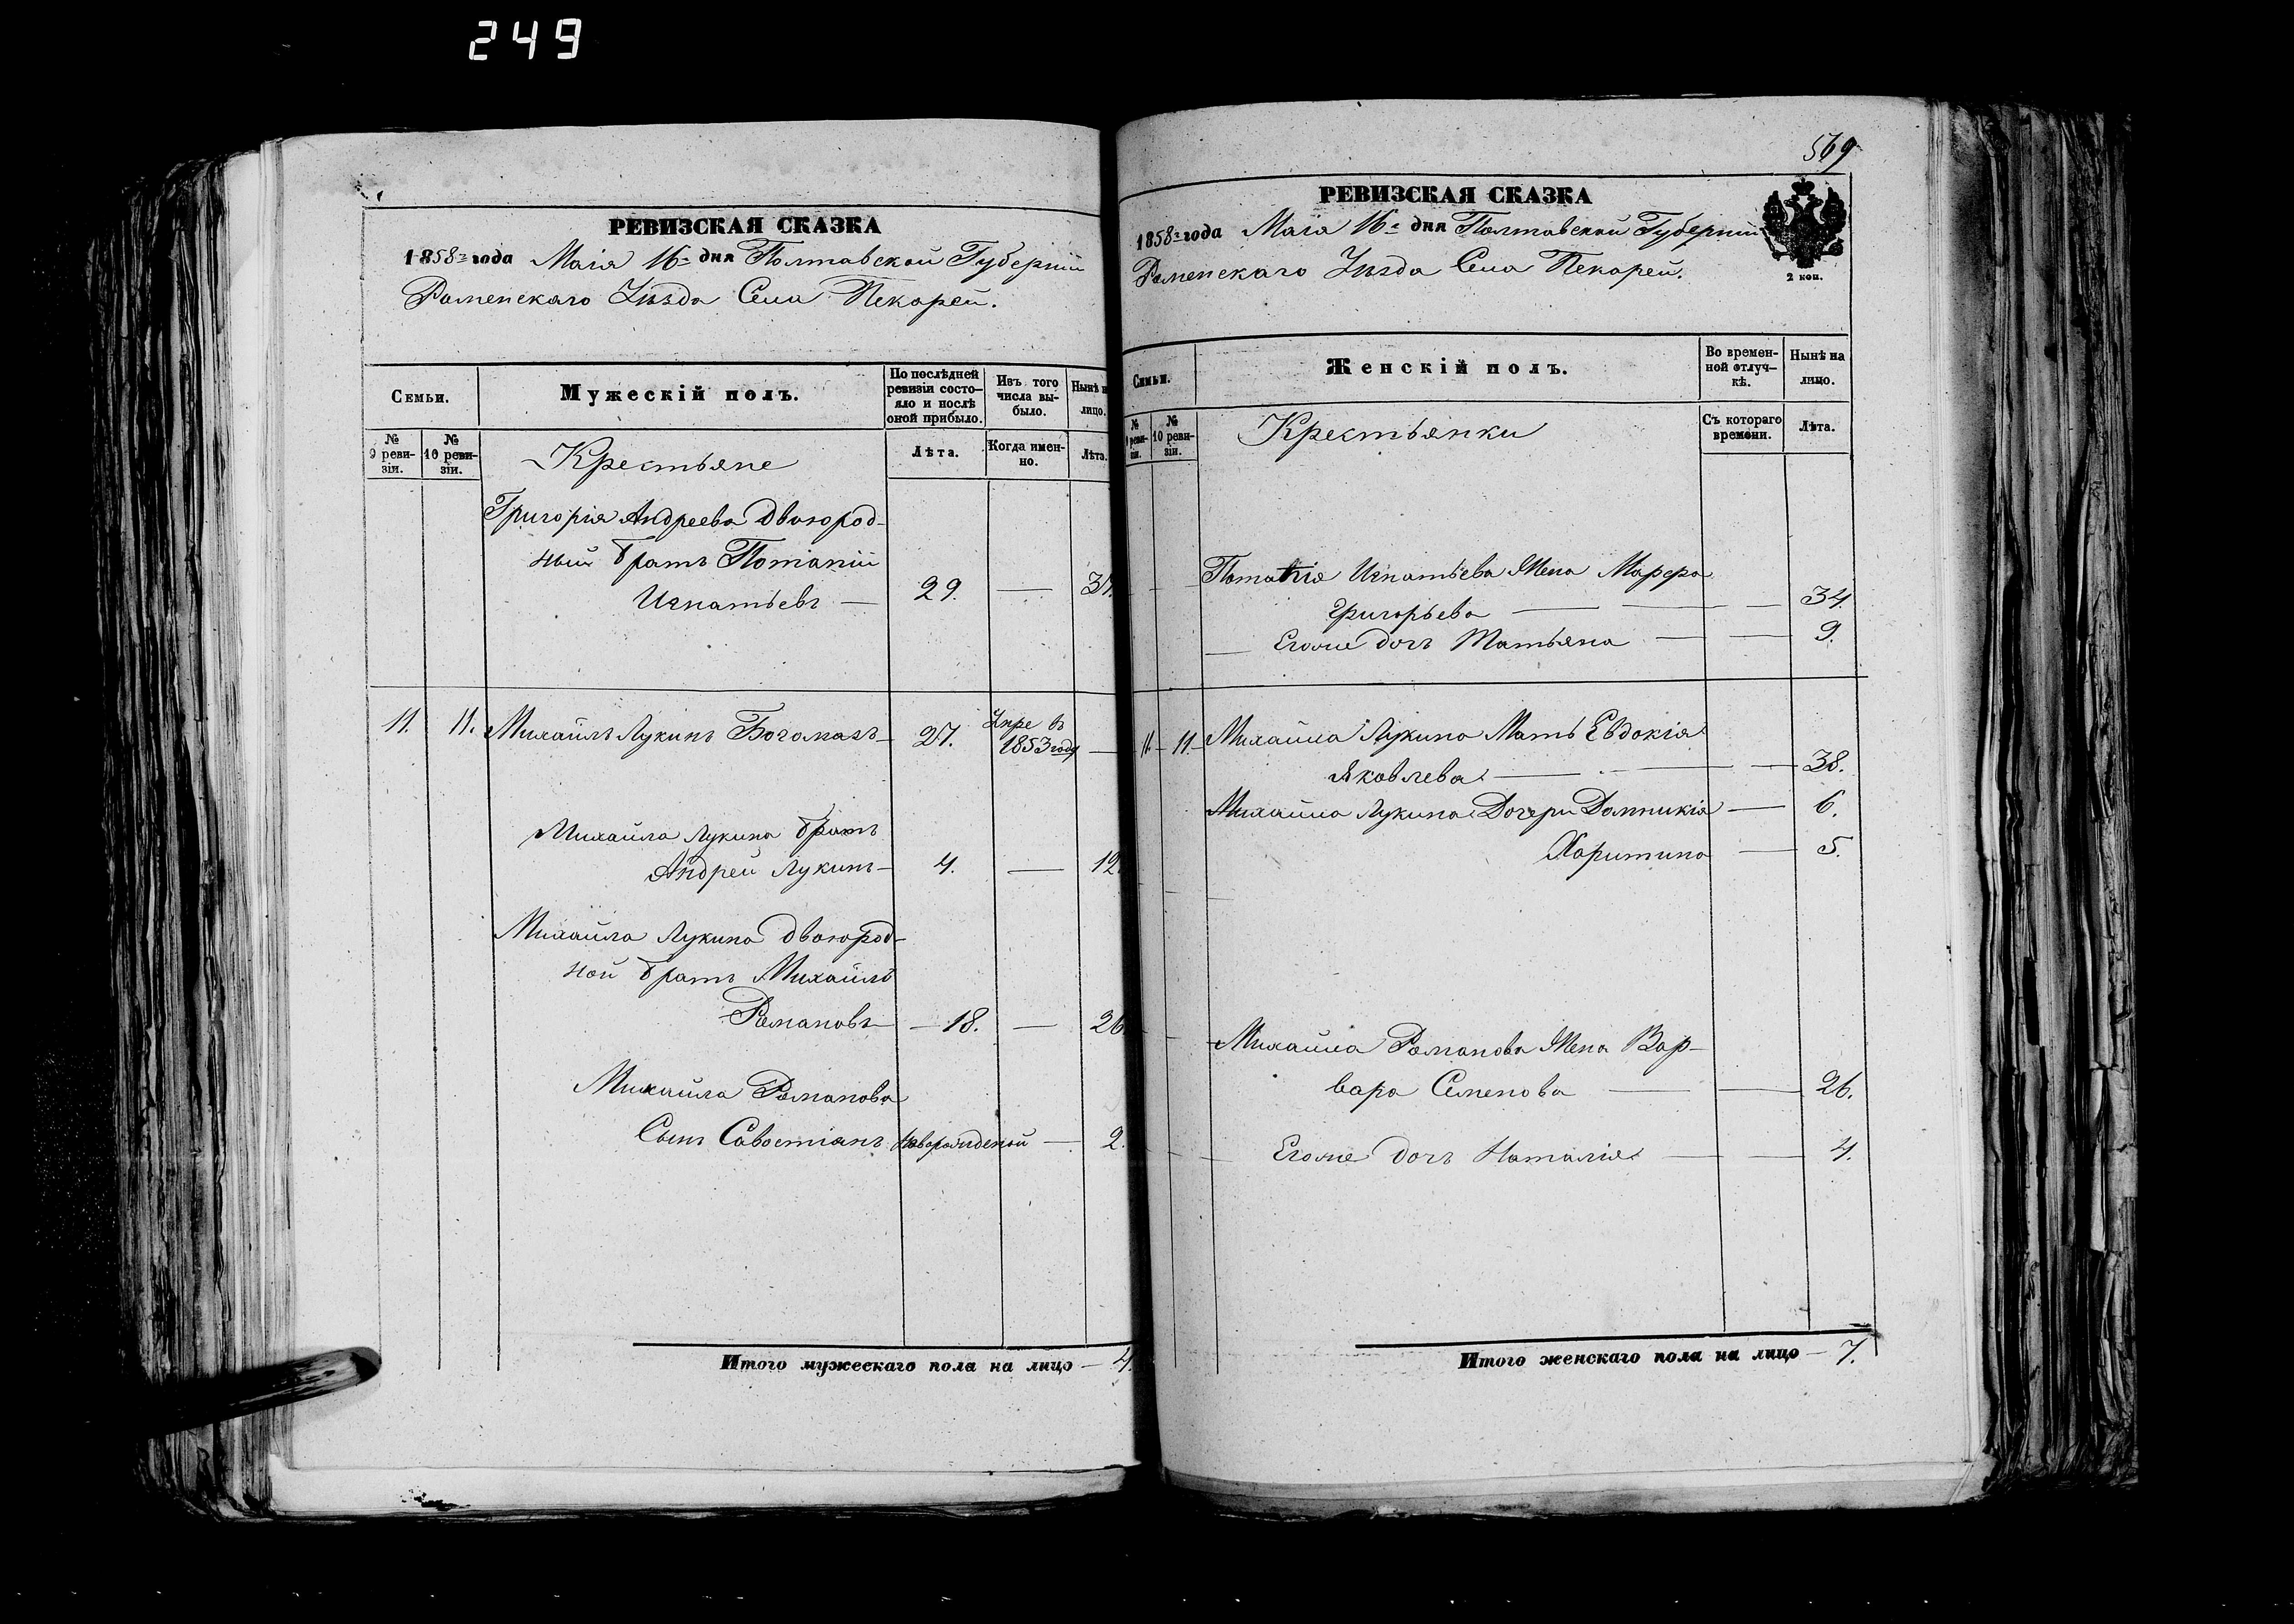 249
РЕВИЗСКАЯ СКАЗКА
1858го года Маія 16го дня Полтавской Губерніи
Роменскаго Уѣзда Села Пекарей.
Семьи.
Мужескій полъ.
По послѣдней ревизіи состояло и послѣ оной прибыло.
Изъ того числа выбыло.
Нынѣ н
лицо.
№ 9 ревизіи.
№ 10 ревизіи.
Крестьяне
Лѣта.
Когда именно.
Лѣта.
Григорія Андреева Двоюрод-
ный братъ Потапій
Игнатьевъ — 29. — 37.
11. 11. Михайлъ Лукинъ Богомазъ — 27. Умре въ 1853 году —
Михайла Лукина братъ
Андрей Лукинъ — 4. — 12
Михайла Лукина двоюрод-
ной братъ Михайлъ
Романовъ — 18. — 26
Михайла Романова
Сынъ Савостіанъ новорожденой — 2.
Итого мужескаго пола на лицо — 4.
569
РЕВИЗСКАЯ СКАЗКА
1858го года Маія 16го дня Полтавской Губерніи
Роменскаго Уѣзда Села Пекарей.
2 коп.
Семьи.
Женскій полъ.
Во временной отлучкѣ.
Нынѣ на лицо.
№ 9 ревизіи.
№ 10 ревизіи.
Крестьянки
Съ котораго времени.
Лѣта.
Потапія Игнатьева Жена Марфа
Григорьева — — — 34.
Егоже дочь Татьяна — — 9.
11. 11. Михайла Лукина Мать Евдокія
Яковлева — — — 38.
Михайла Лукина Дочери Домникія — 6.
Харитина — 5.
Михайла Романова Жена Вар-
вара Семенова — — 26.
Егоже дочь Наталія — — 4.
Итого женскаго пола на лицо — 7.